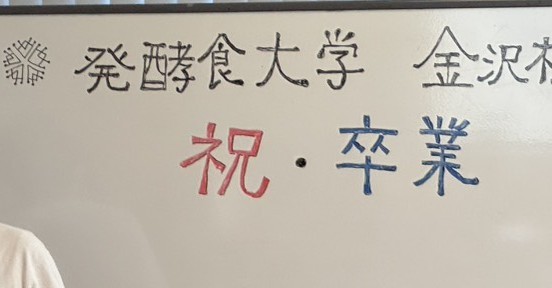 発酵食大学 金沢
祝・卒業